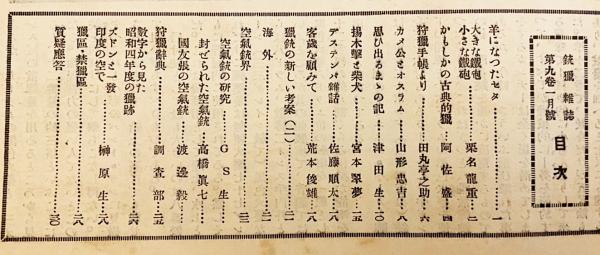 銃獵雜誌
第九卷一月號
目次
羊になつたセタ…一
大きな鐵砲
小さな鐵砲…栗名龍重…二
かもしかの古典的獵…阿佐盛…四
狩獵手帳より…田丸亭之助…六
カメ公とオスラム…山形忠吉…八
思ひ出るまゝの記…津田生…一〇
揚木擊と柴犬…宮本翠夢…一五
デステンパ雜話…佐藤順太…一八
客歲を顧みて…荒本俊雄…一八
獵銃の新しい考案(二)…二一
海外…二二
空氣銃界…二三
空氣銃の研究…GS生
封ぜられた空氣銃…高橋眞七
國友張の空氣銃…渡邊毅
狩獵辭典…調査部…二五
數字から見た
昭和四年度の獵跡…二六
ズドンと一發
印度の空で…榊原生…二八
獵區・禁獵區…二八
質疑應答…三〇